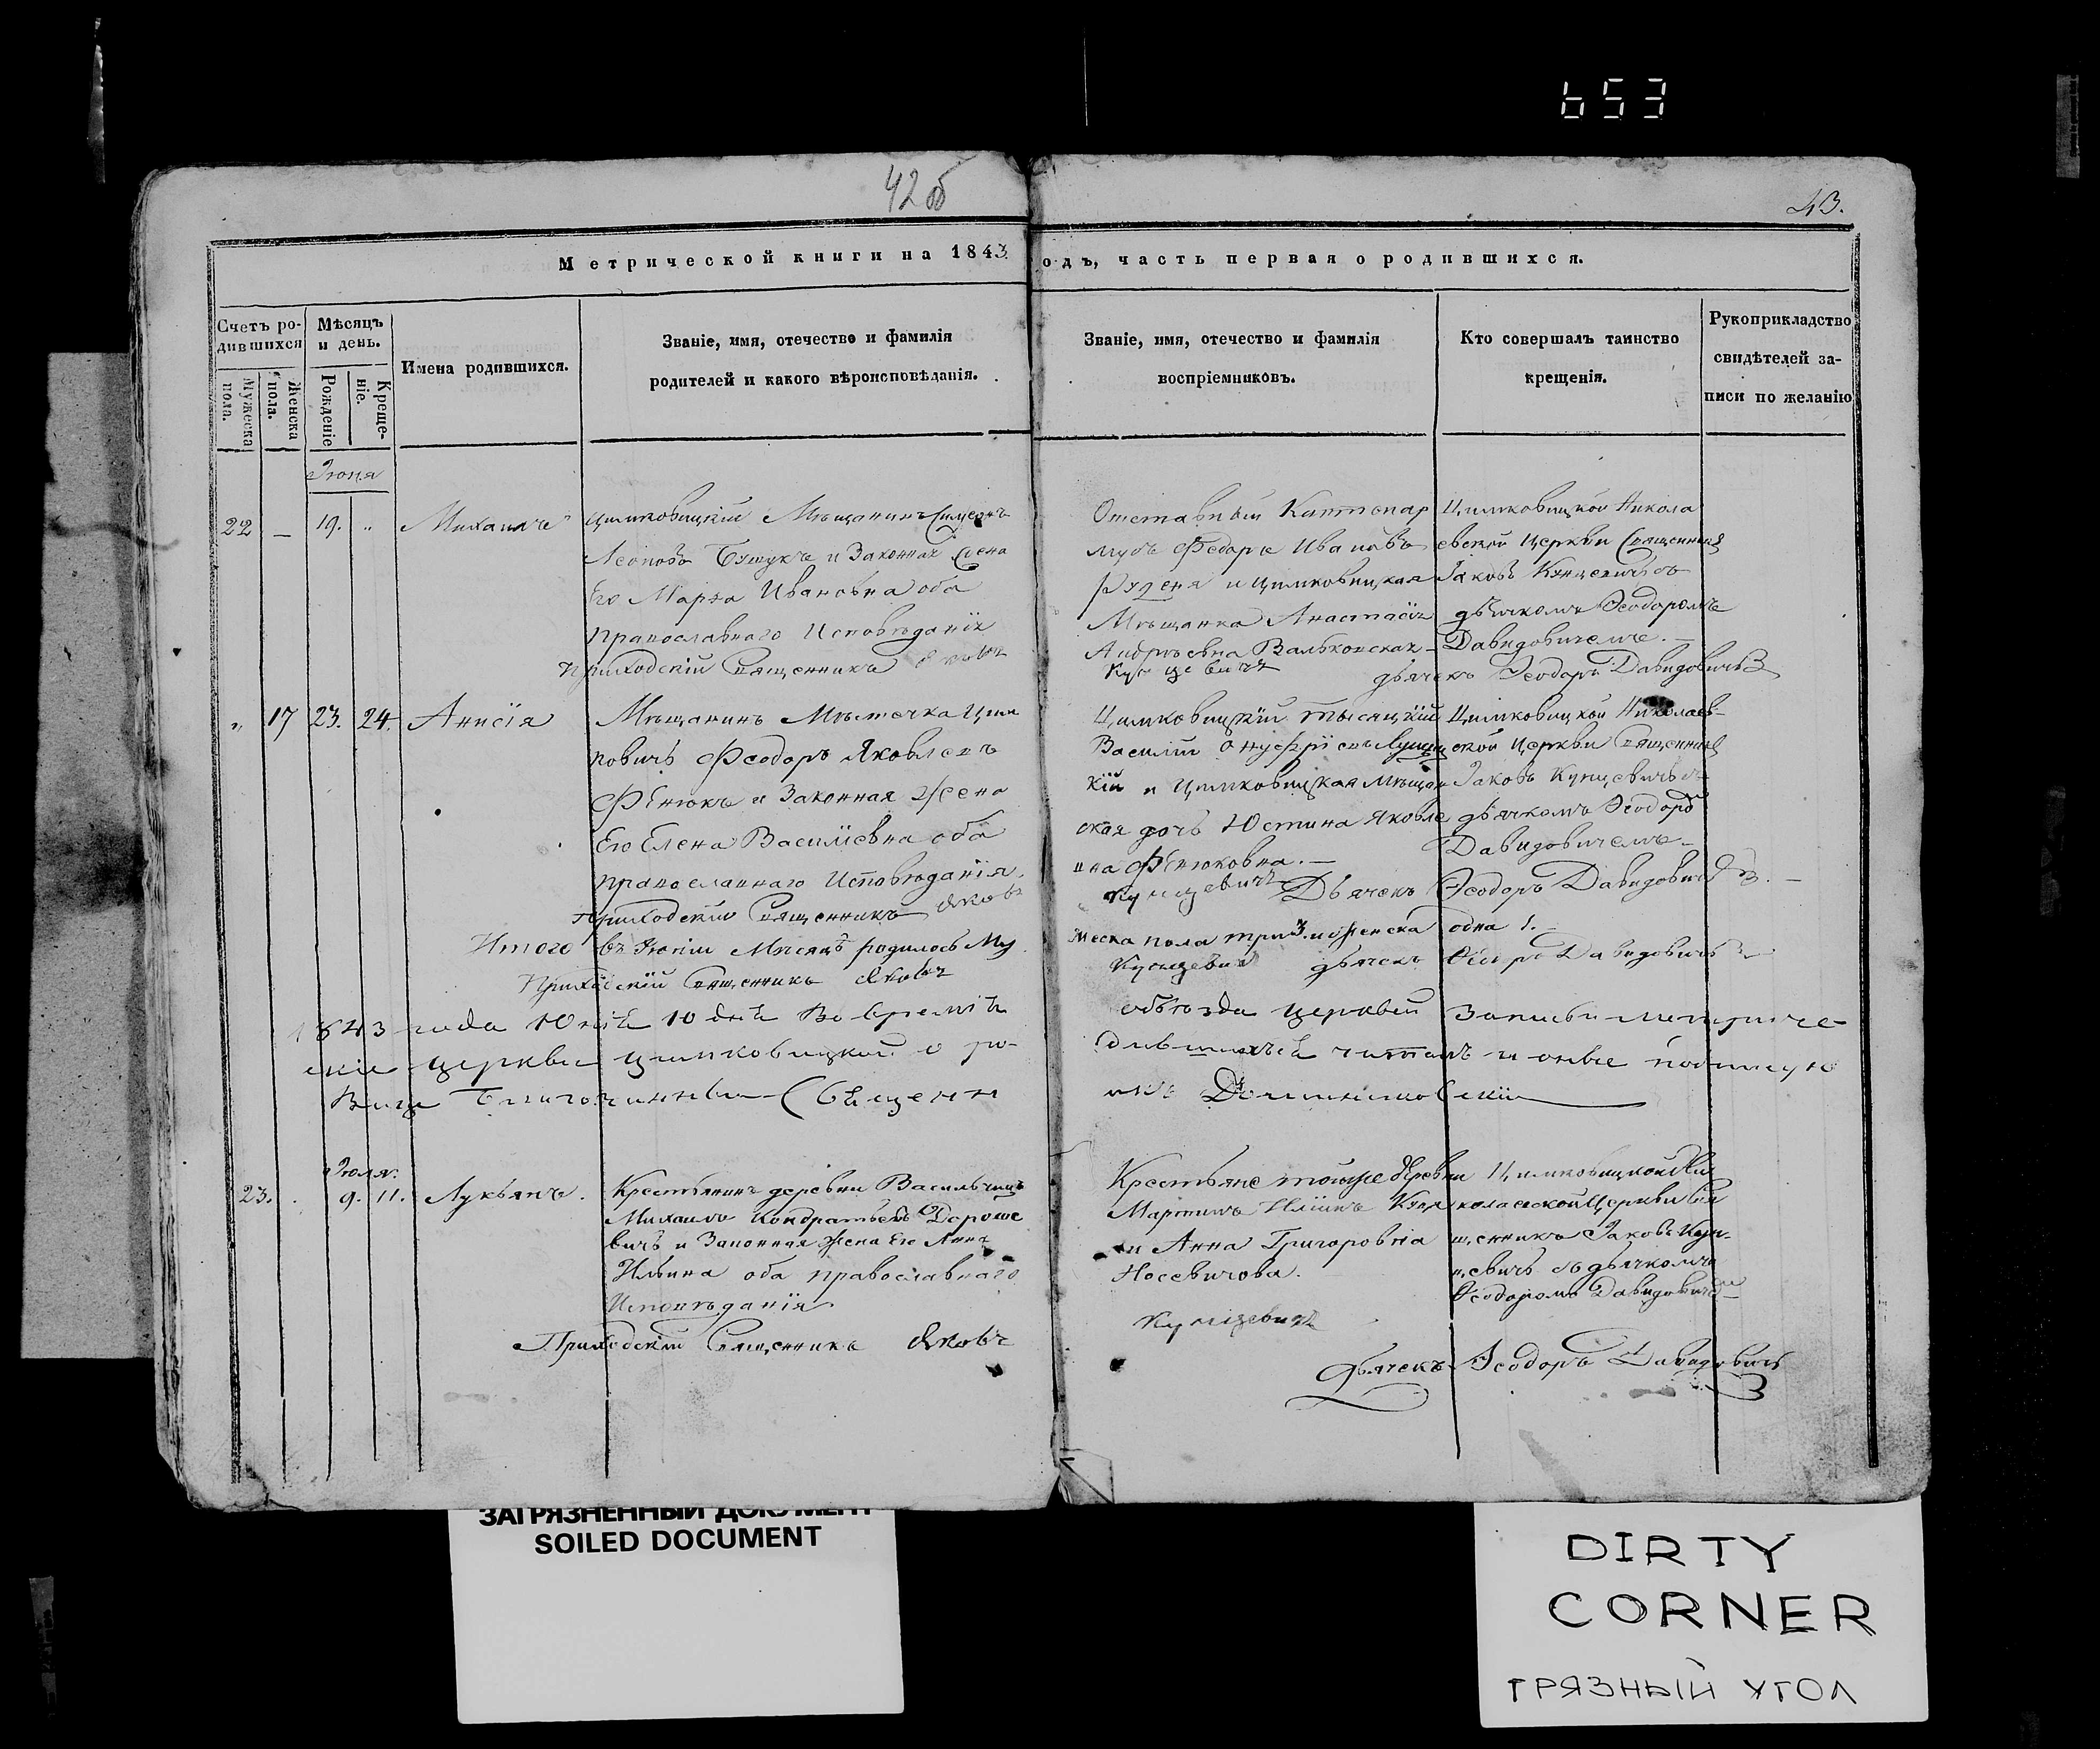 653
42об
43.
Метрической книги на 1843
одъ, часть первая о родившихся.
Счетъ ро-
дившихся
Мужеска
пола.
Женска
пола.
Мѣсяцъ
и день.
Рожденіе
Креще-
ніе.
Имена родившихся.
Званіе, имя, отечество и фамилія
родителей и какого вѣроисповѣданія.
Званіе, имя, отечество и фамилія
воспріемниковъ.
Кто совершалъ таинство
крещенія.
Рукоприкладство
свидѣтелей за-
писи по желанію
Іюня
22 — 19. „ Михаилъ
Цимковицкій Мѣщанинъ Симеонъ
Леоновъ и Законная Жена
Его Марѳа Ивановна оба
Православнаго Исповѣданія
Приходскій Священникъ Яковъ
Отставный
Федоръ Ивановъ
и Цимковицкая
Мѣщанка Анастасія
Андреевна Вальковская
Кунцевичъ
Цимковицкой Никола
евской Церкви Священникъ
Іаковъ Кунцевичъ съ
дьячкомъ Ѳеодоромъ
Давидовичемъ.—
дьячекъ Ѳеодоръ Давидовичъ
„ 17 23. 24. Анисія
Мѣщанинъ Мѣстечка Цим
ковичъ Феодоръ Яковлевъ
Фенюкъ и Законная Жена
Его Елена Василіевна оба
православнаго Исповѣданія.
Приходскій Священникъ Яковъ
Цимковицкій тысяцкій
Василій Онуфріевъ Лущиц
кій и Цимковицкая Мѣщан
ская дочь Юстина Яковле
вна Фенюковна.—
Кунцевичъ Дьячекъ
Цимковицкой Николаев-
ской Церкви Священникъ
Іаковъ Кунцевичъ съ
дьячкомъ Ѳеодоро
Давидовичемъ—
Ѳеодоръ Давидовичъ
Итого въ Іюнѣ Мѣсяцѣ родилось Му
жеска пола три 3. и Женска одна 1.
Приходскій Священникъ Яковъ
Кунцевичъ дьячекъ Ѳеодоръ Давидовичъ
1843 года Юнія 10 дня Во время
объѣзда церквей Записи метриче
скіе церкви Цимковицкой о ро-
дившихся читалъ и оные подписую
Вице Благочинный Священн
икъ
Іюля.
23. . 9. 11. Лукьянъ.
Крестьянинъ деревни Васильчицъ
Михаилъ Кондратьевъ Дороше
вичъ и Законная Жена Его Анна
Ильина оба православнаго
Исповѣданія
Приходскій Священникъ Яковъ
Крестьяне тойже деревни
Мартинъ Ильинъ
и Анна Григоровна
Носевичова.
Кунцевичъ
Цимковицкой Ни
колаевской Церкви Свя
щенникъ Іаковъ Кун-
цевичъ съ дьячкомъ
Ѳеодоромъ Давидовиче
дьячекъ Ѳеодоръ Давидовичъ
ЗАГРЯЗНЕННЫЙ ДОКУМЕНТ
SOILED DOCUMENT
DIRTY
CORNER
ГРЯЗНЫЙ УГОЛ